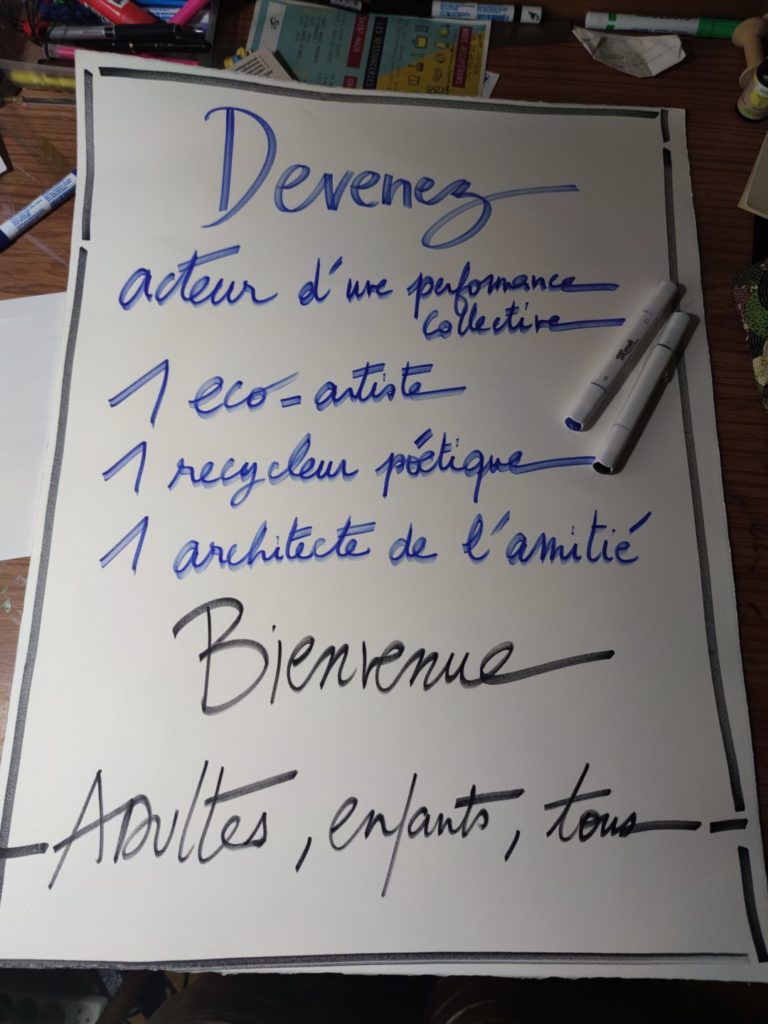 LES RESSOURCERIES
Devenez
acteur d'une performance
collective
1 eco-artiste
1 recycleur poétique
1 architecte de l'amitié
Bienvenue
Adultes, enfants, tous